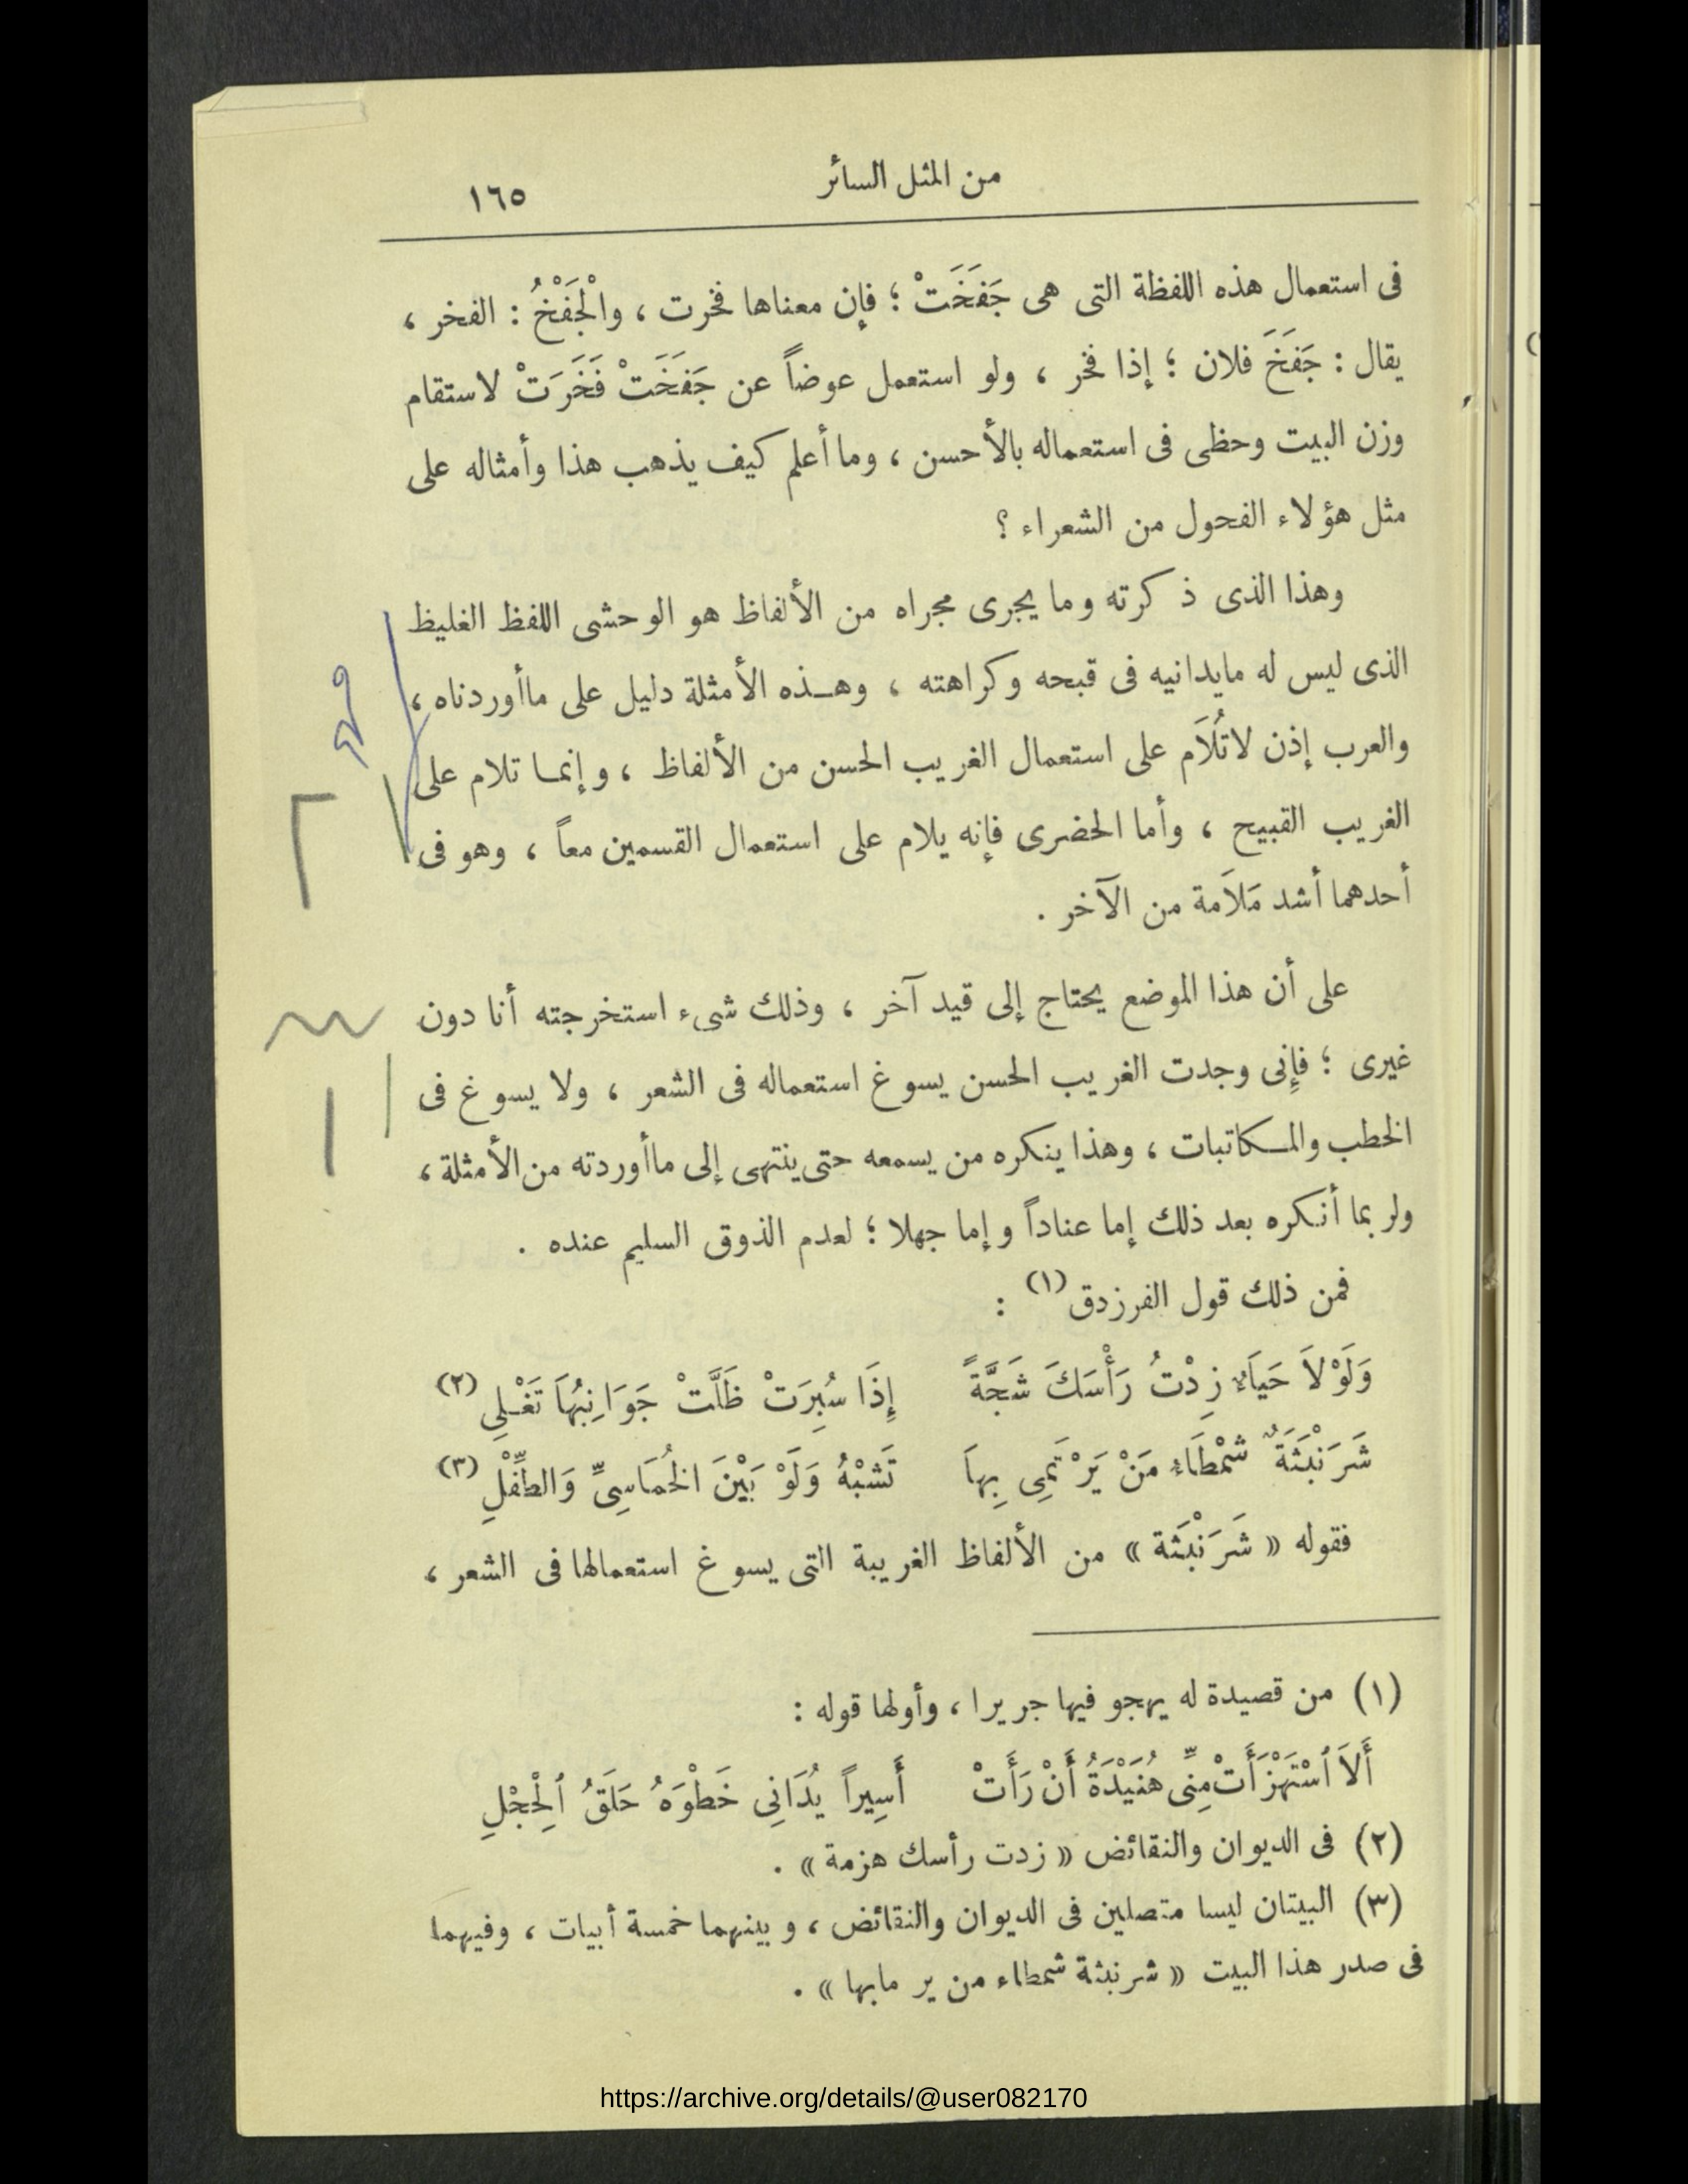 من المثل السائر
١٦٥
فى استعمال هذه اللفظة التى هى جَفَخَتْ ؛ فإن معناها فخرت ، والْجَفْخُ : الفخر ،
يقال : جَفَخَ فلان ؛ إذا فخر ، ولو استعمل عوضاً عن جَفَخَتْ فَخَرَتْ لاستقام
وزن البيت وحظى فى استعماله بالأحسن ، وما أعلم كيف يذهب هذا وأمثاله على
مثل هؤلاء الفحول من الشعراء ؟
وهذا الذى ذكرته وما يجرى مجراه من الألفاظ هو الوحشى اللفظ الغليظ
الذى ليس له مايدانيه فى قبحه وكراهته ، وهـذه الأمثلة دليل على ماأوردناه ،
والعرب إذن لاتُلاَم على استعمال الغريب الحسن من الألفاظ ، وإنما تلام على
الغريب القبيح ، وأما الحضرى فإنه يلام على استعمال القسمين معاً ، وهو فى
أحدهما أشد مَلاَمة من الآخر .
على أن هذا الموضع يحتاج إلى قيد آخر ، وذلك شىء استخرجته أنا دون
غيرى ؛ فإنى وجدت الغريب الحسن يسوغ استعماله فى الشعر ، ولا يسوغ فى
الخطب والمـكاتبات ، وهذا ينكره من يسمعه حتى ينتهى إلى ماأوردته من الأمثلة ،
ولربما أنـكره بعد ذلك إما عناداً وإما جهلا ؛ لعدم الذوق السليم عنده .
فمن ذلك قول الفرزدق (١) :
وَلَوْلاَ حَيَاءٌ زِدْتُ رَأْسَكَ شَجَّةً إِذَا سُبِرَتْ ظَلَّتْ جَوَانِبُهاَ تَغْـلِي (٢)
شَرَنْبَثَةٌ شَمْطَاءُ مَنْ يَرْتَمِى بِهاَ تَشُبْهُ وَلَوْ بَيْنَ الخُمَاسِىِّ وَالطِّفْلِ (٣)
فقوله « شَرَنْبَثة » من الألفاظ الغريبة التى يسوغ استعمالها فى الشعر ،
(١) من قصيدة له يهجو فيها جريرا ، وأولها قوله :
أَلاَ ٱسْتَهْزَأَتْ مِنِّى هُنَيْدَةُ أَنْ رَأَتْ أَسِيراً يُدَانِى خَطْوَهُ حَلَقُ ٱلْحِجْلِ
(٢) فى الديوان والنقائض « زدت رأسك هزمة » .
(٣) البيتان ليسا متصلين فى الديوان والنقائض ، وبينهما خمسة أبيات ، وفيهما
فى صدر هذا البيت « شرنبثة شمطاء من ير مابها » .
https://archive.org/details/@user082170